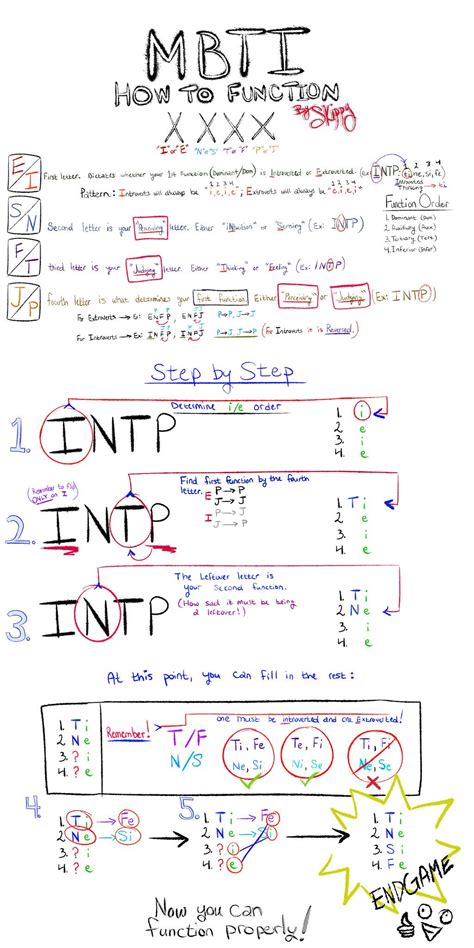 MBTI
HOW TO FUNCTION
By Skippy
X X X X
"I" or "E" "N" or "S" "T" or "F" "P" or "J"
E/I First letter. Dictates whether your 1st Function (Dominant/Dom) is Introverted or Extroverted. (ex: INTP: Ti, Ne, Si, Fe)
1 2 3 4
Introverted Thinking → Ti
Pattern: Introverts will always be "i, e, i, e"; Extroverts will always be "e, i, e, i"
1 2 3 4
1 2 3 4
Function Order
1. Dominant (Dom)
2. Auxiliary (Aux)
3. Tertiary (Tert)
4. Inferior (Infer)
S/N Second letter is your "Perceiving" letter. Either "iNtuition" or "Sensing" (Ex: INTP)
F/T third letter is your "Judging" letter. Either "Thinking" or "Feeling" (Ex: INTP)
J/P fourth letter is what determines your first function. Either "Perceiving" or "Judging" (Ex: INTP)
For Extroverts → Ex: ENFP, ENFJ P→P, J→J
For Introverts → Ex: INFP, INFJ P→J, J→P (For Introverts it is Reversed.)
Step by Step
1. INTP
Determine i/e order
1. i
2. e
3. i
4. e
(Remember to flip ONLY on I)
2. INTP
Find first function by the fourth
letter. E P → P
J → J
I P → J
J → P
1. Ti
2. e
3. i
4. e
3. INTP
The Leftover letter is
your Second function.
(How sad it must be being
a leftover!)
1. Ti
2. Ne
3. i
4. e
At this point, you can fill in the rest:
1. Ti
2. Ne
3. ? i
4. ? e
Remember!
one must be introverted and one Extroverted!
T/F
N/S
Ti, Fe
Ne, Si
Te, Fi
Ni, Se
Ti, Fi
Ne, Se
4.
1. Ti → Fe
2. Ne → Si
3. ? i
4. ? e
5.
1. Ti → Fe
2. Ne → Si
3. ? i
4. ? e
1. Ti
2. Ne
3. Si
4. Fe
ENDGAME
Now you can
function properly!